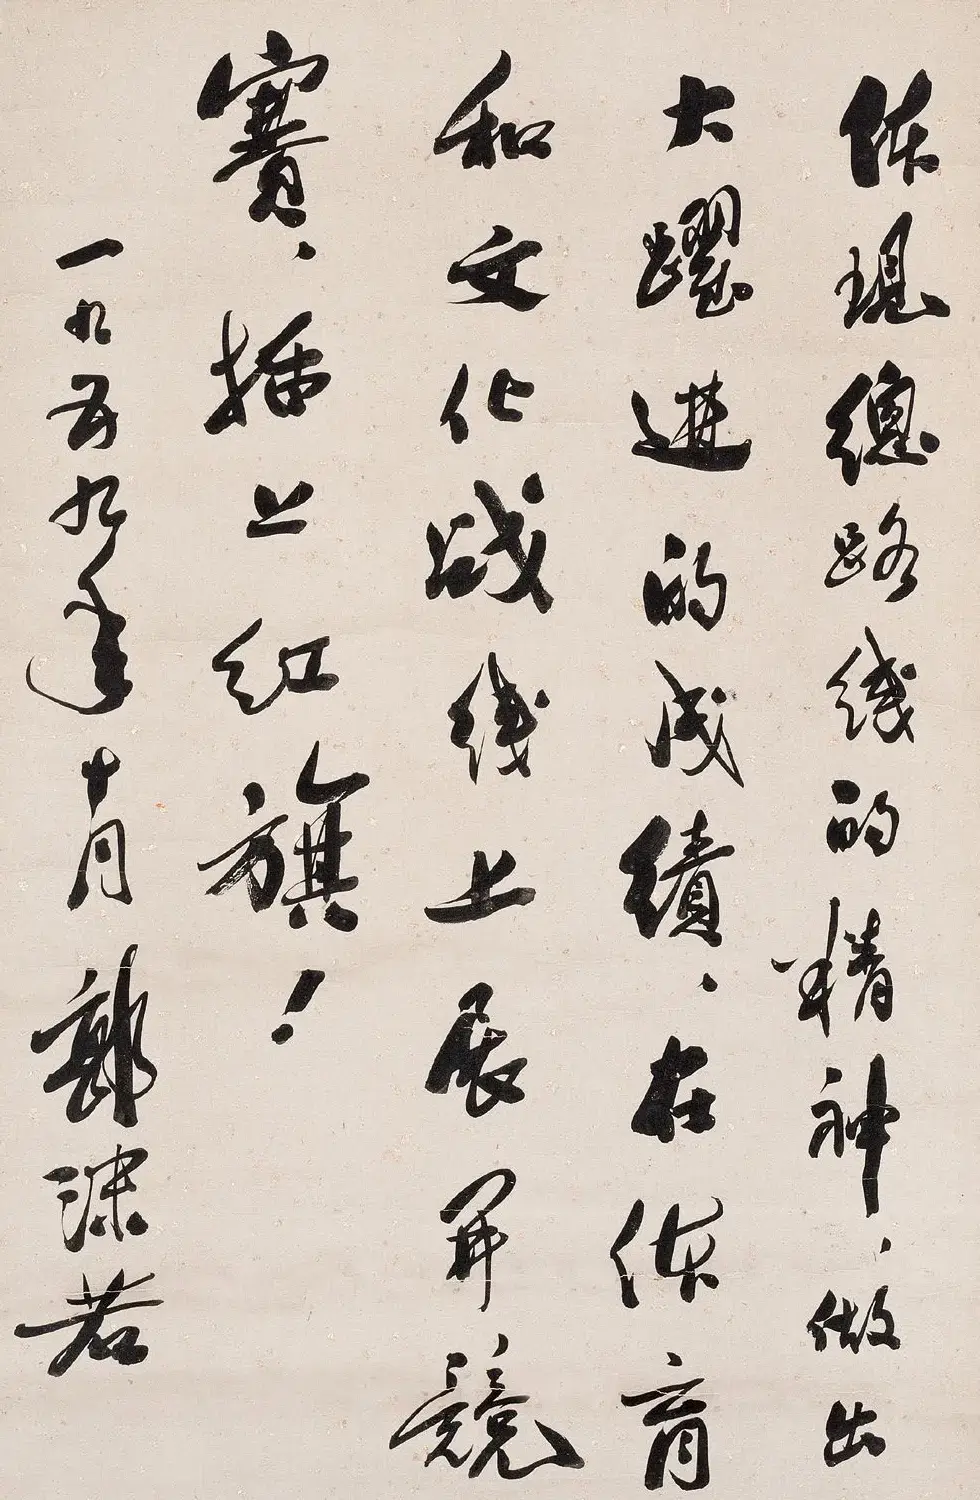 体现總路线的精神、做出
大躍进的成績、在体育
和文化战线上展开競
賽、插上红旗！
一九五九年十月 郭沫若